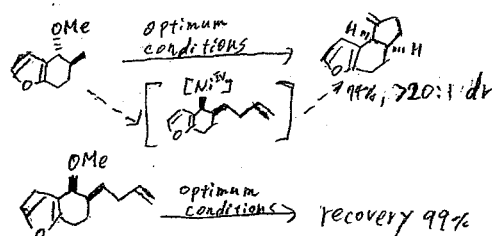 OMe
optimum
conditions
H
H
O
O
99%, >20:1 dr
[Ni^IV]
O
OMe
O
optimum
conditions
recovery 99%